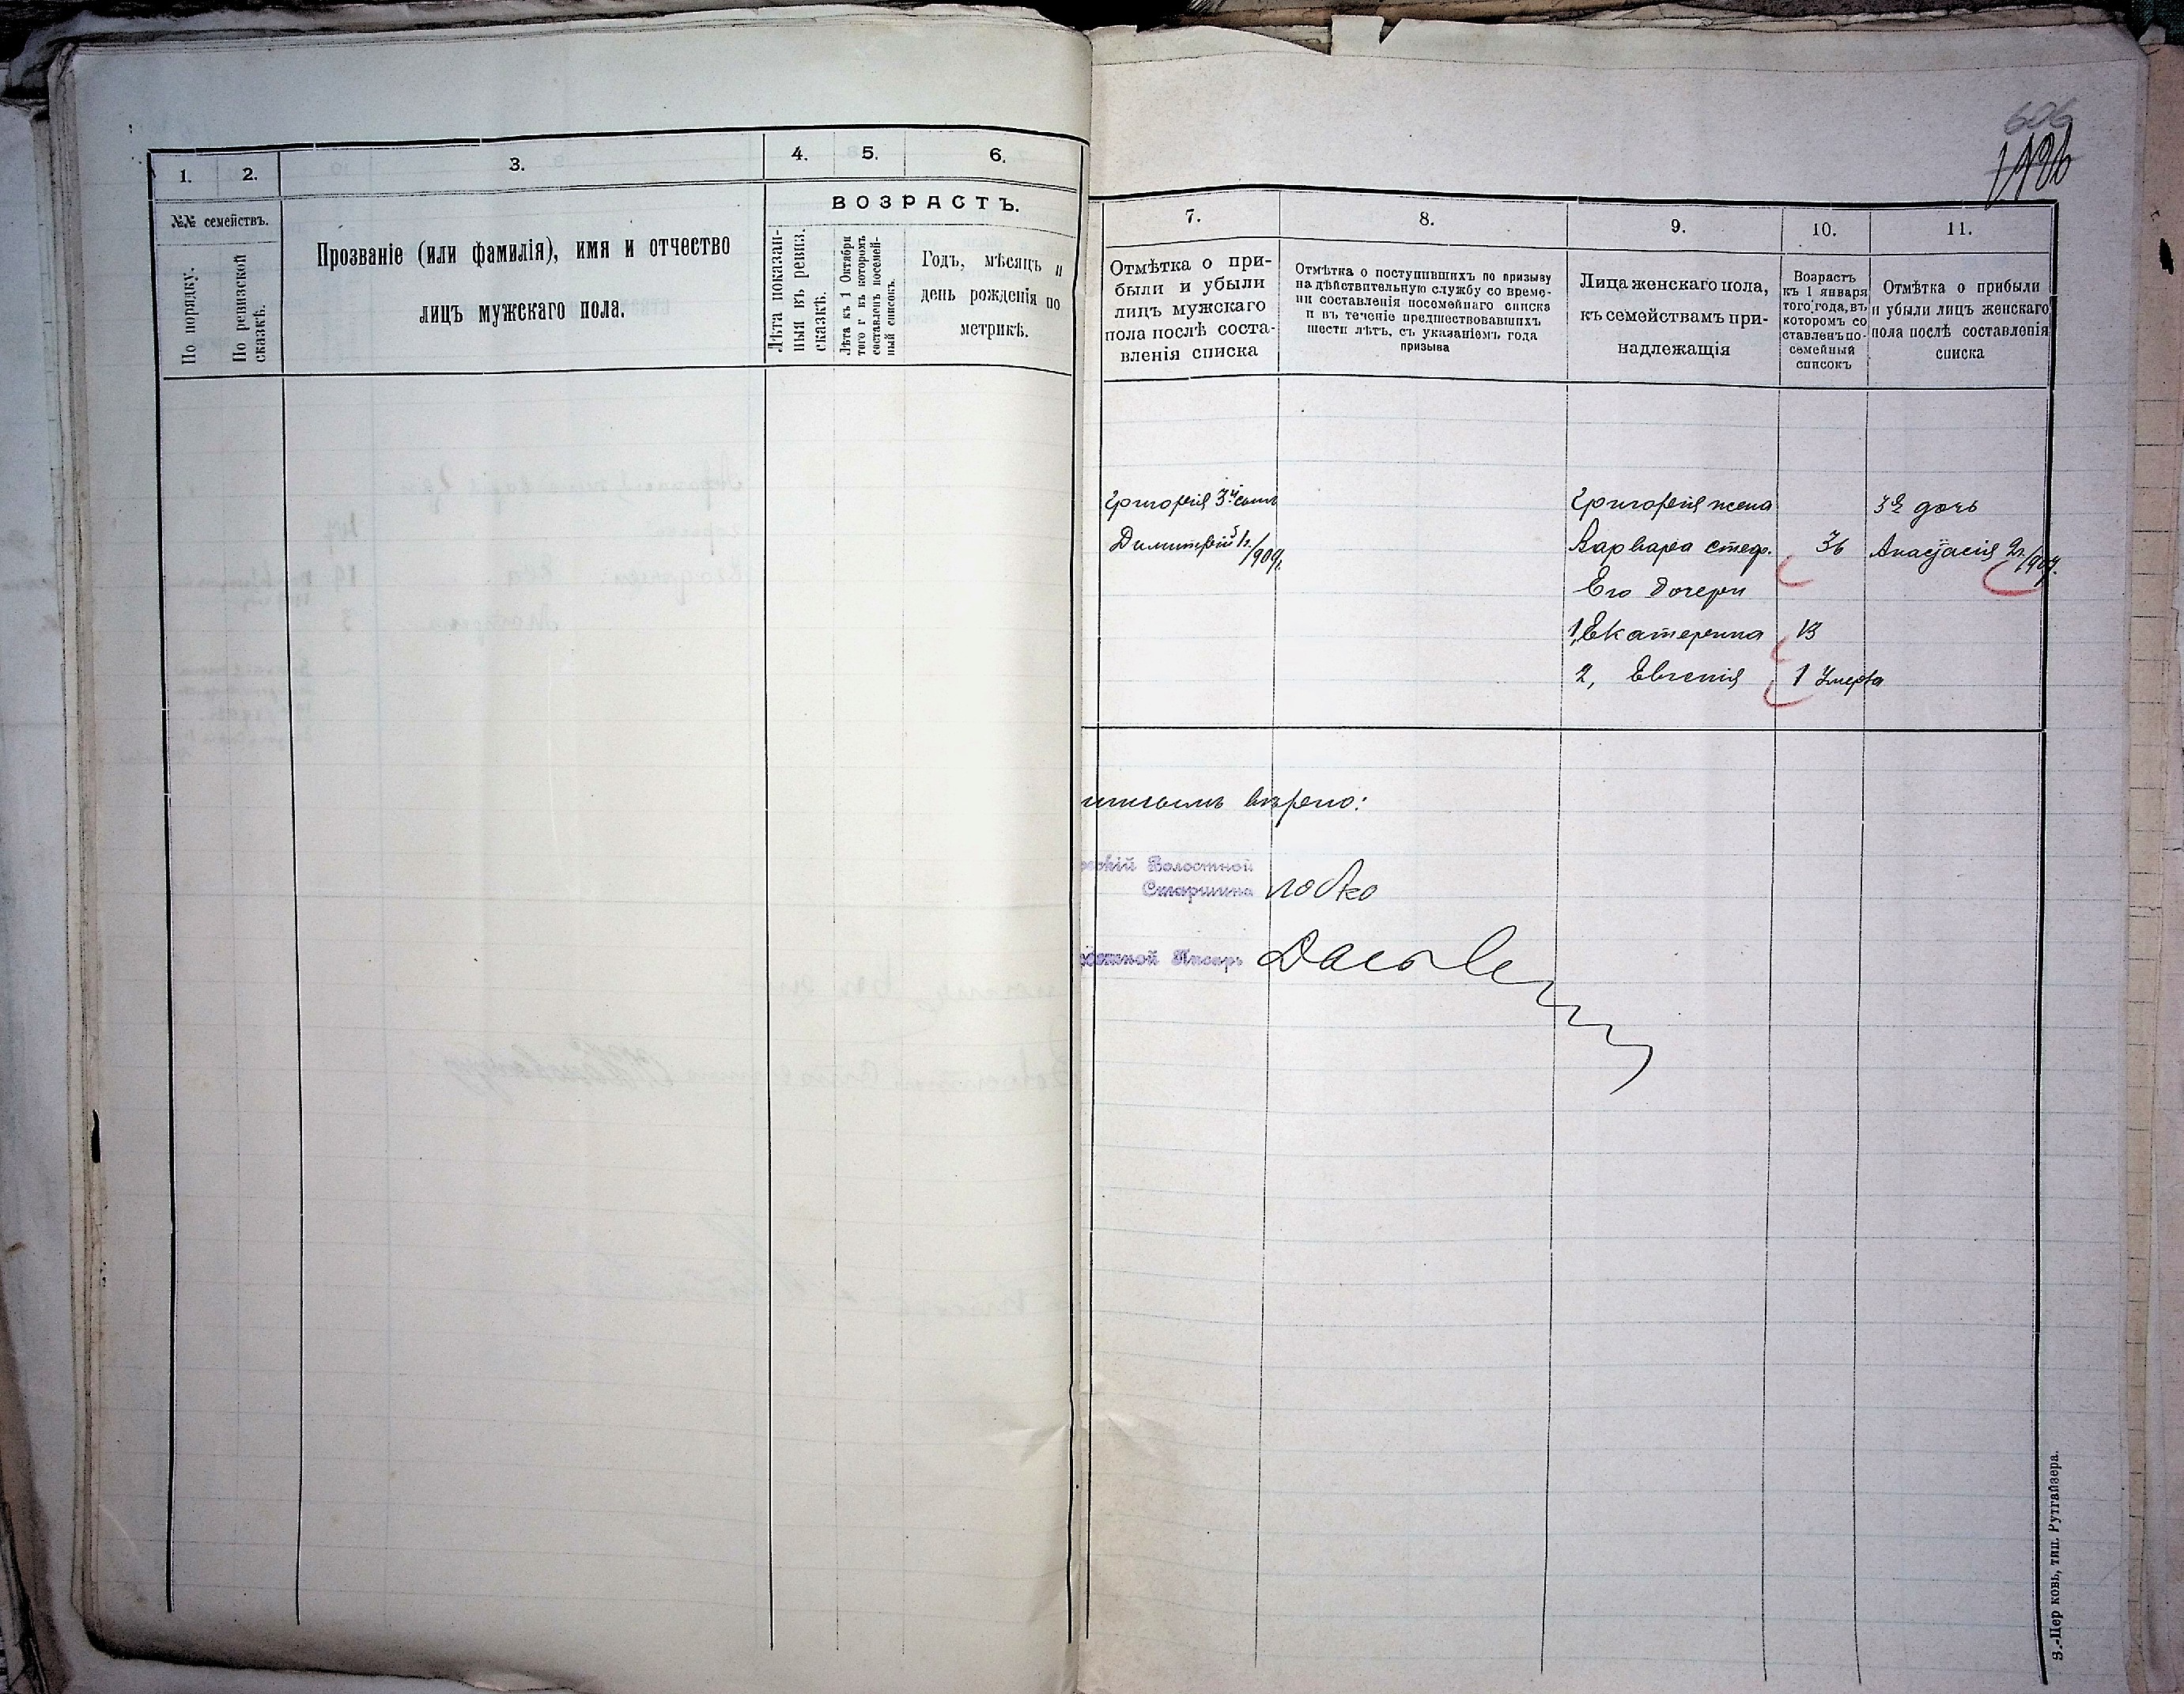 606
1.
2.
3.
4.
5.
6.
№№ семействъ.
По порядку.
По ревизской
сказкѣ.
Прозваніе (или фамилія), имя и отчество
лицъ мужскаго пола.
ВОЗРАСТЪ.
Лѣта показан-
ныя въ ревиз.
сказкѣ.
Лѣта къ 1 Октября
того г въ которомъ
составленъ посемей-
ный списокъ.
Годъ, мѣсяцъ и
день рожденія по
метрикѣ.
7.
8.
9.
10.
11.
Отмѣтка о при-
были и убыли
лицъ мужскаго
пола послѣ соста-
вленія списка
Отмѣтка о поступившихъ по призыву
на дѣйствительную службу со време-
ни составленія посемейнаго списка
и въ теченіе предшествовавшихъ
шести лѣтъ, съ указаніемъ года
призыва
Лица женскаго пола,
къ семействамъ при-
надлежащія
Возрастъ
къ 1 января
того года, въ
котором со
ставленъ по-
семейный
списокъ
Отмѣтка о прибыли
и убыли лицъ женскаго
пола послѣ составленія
списка
Григорія 3й сынъ
Димитрій 1г./909г.
Григорія жена
Варвара Стеф. 36
Его дочери
1, Екатерина 13
2, Евгенія 1 Умерла
3я дочь
Анастасія 2г./909г.
вѣрно:
Волостной
Старшина
Писарь
З.-Цер ковь, тип. Рутгайзера.